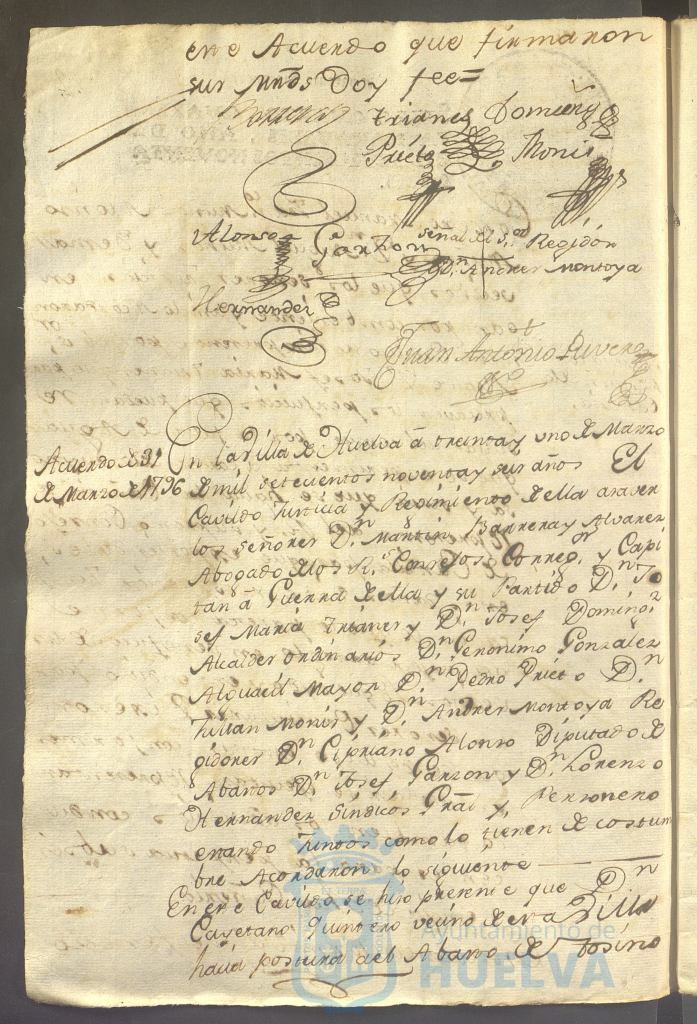 ene Acuerdo que firmaron
sus mrds Doy fee=
Barrera Trianes Doming.z
Prieto Monis
Alonso Garzon señal del S.or Regidor
D.n Andres Montoya
Hernandez
Juan Antonio Rivero
Acuerdo de 31
de Marzo de 1796
En la Villa de Huelva à treinta y uno de Marzo
de mil setecientos noventa y seis años El
Cavildo Justicia y Regimiento de ella asaver
los señores D.n Martin Barrera y Alvarez
Abogado de los R.s Consejos Correg.or y Capi
tan à Guerra de ella y su Partido D.n Jo
sef Maria Trianes y D.n Josef Doming.z
Alcaldes ordinarios D.n Geronimo Gonzalez
Alguacil Mayor D.n Pedro Prieto D.n
Julian Monis y D.n Andres Montoya Re
gidores D.n Cipriano Alonso Diputado de
Abastos D.n Josef Garzon y D.n Lorenzo
Hernandez Sindicos Gral y Personero
estando Juntos como lo tienen de costum
bre Acordaron lo siguiente
En este Cavildo se hiso presente que D.n
Cayetano Quintero vecino de esta Villa
hacia postura del Abasto de Tosino
Ayuntamiento de
HUELVA